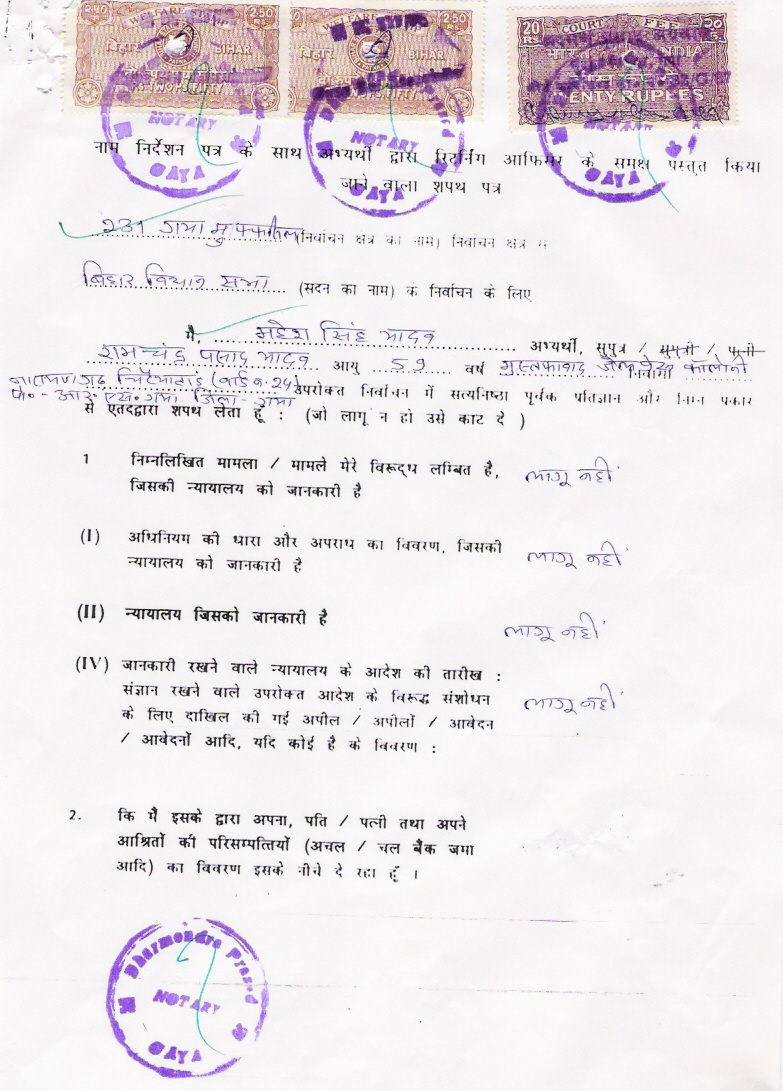 २·५० WELFARE STAMP 2.50
बिहार BIHAR
RS.TWO PS.FIFTY
WELFARE STAMP 2.50
बिहार BIHAR
RS.TWO PS.FIFTY
20 COURT FEE २०
RS. रु.
भारत INDIA
बीस रुपये
TWENTY RUPEES
NOTARY
GAYA
NOTARY
GAYA
NOTARY
GAYA
नाम निर्देशन पत्र के साथ अभ्यर्थी द्वारा रिटर्निंग आफिसर के समक्ष प्रस्तुत किया
जाने वाला शपथ पत्र
231 गया मुफ्फसिल (निर्वाचन क्षेत्र का नाम) निर्वाचन क्षेत्र से
बिहार विधान सभा (सदन का नाम) के निर्वाचन के लिए
मै, महेश सिंह यादव अभ्यर्थी, सुपुत्र / सुपुत्री / पत्नी
राम चंद्र प्रसाद यादव आयु 59 वर्ष मुस्तफाबाद कॉलोनी निवासी
(वार्ड न. 24) उपरोक्त निर्वाचन में सत्यनिष्ठा पूर्वक प्रतिज्ञान और निम्न प्रकार
पो॰ - आर॰ एस॰ गया जिला - गया
से एतदद्वारा शपथ लेता हूँ : (जो लागू न हो उसे काट दे )
1 निम्नलिखित मामला / मामले मेरे विरूद्ध लम्बित है, लागू नहीं
जिसकी न्यायालय को जानकारी है
(I) अधिनियम की धारा और अपराध का विवरण, जिसकी लागू नहीं
न्यायालय को जानकारी है
(II) न्यायालय जिसको जानकारी है लागू नहीं
(IV) जानकारी रखने वाले न्यायालय के आदेश की तारीख :
संज्ञान रखने वाले उपरोक्त आदेश के विरूद्ध संशोधन लागू नहीं
के लिए दाखिल की गई अपील / अपीलों / आवेदन
/ आवेदनों आदि, यदि कोई है के विवरण :
2. कि मैं इसके द्वारा अपना, पति / पत्नी तथा अपने
आश्रितों की परिसम्पत्तियों (अचल / चल बैंक जमा
आदि) का विवरण इसके नीचे दे रहा हूँ ।
Dharmendra Prasad
NOTARY
GAYA